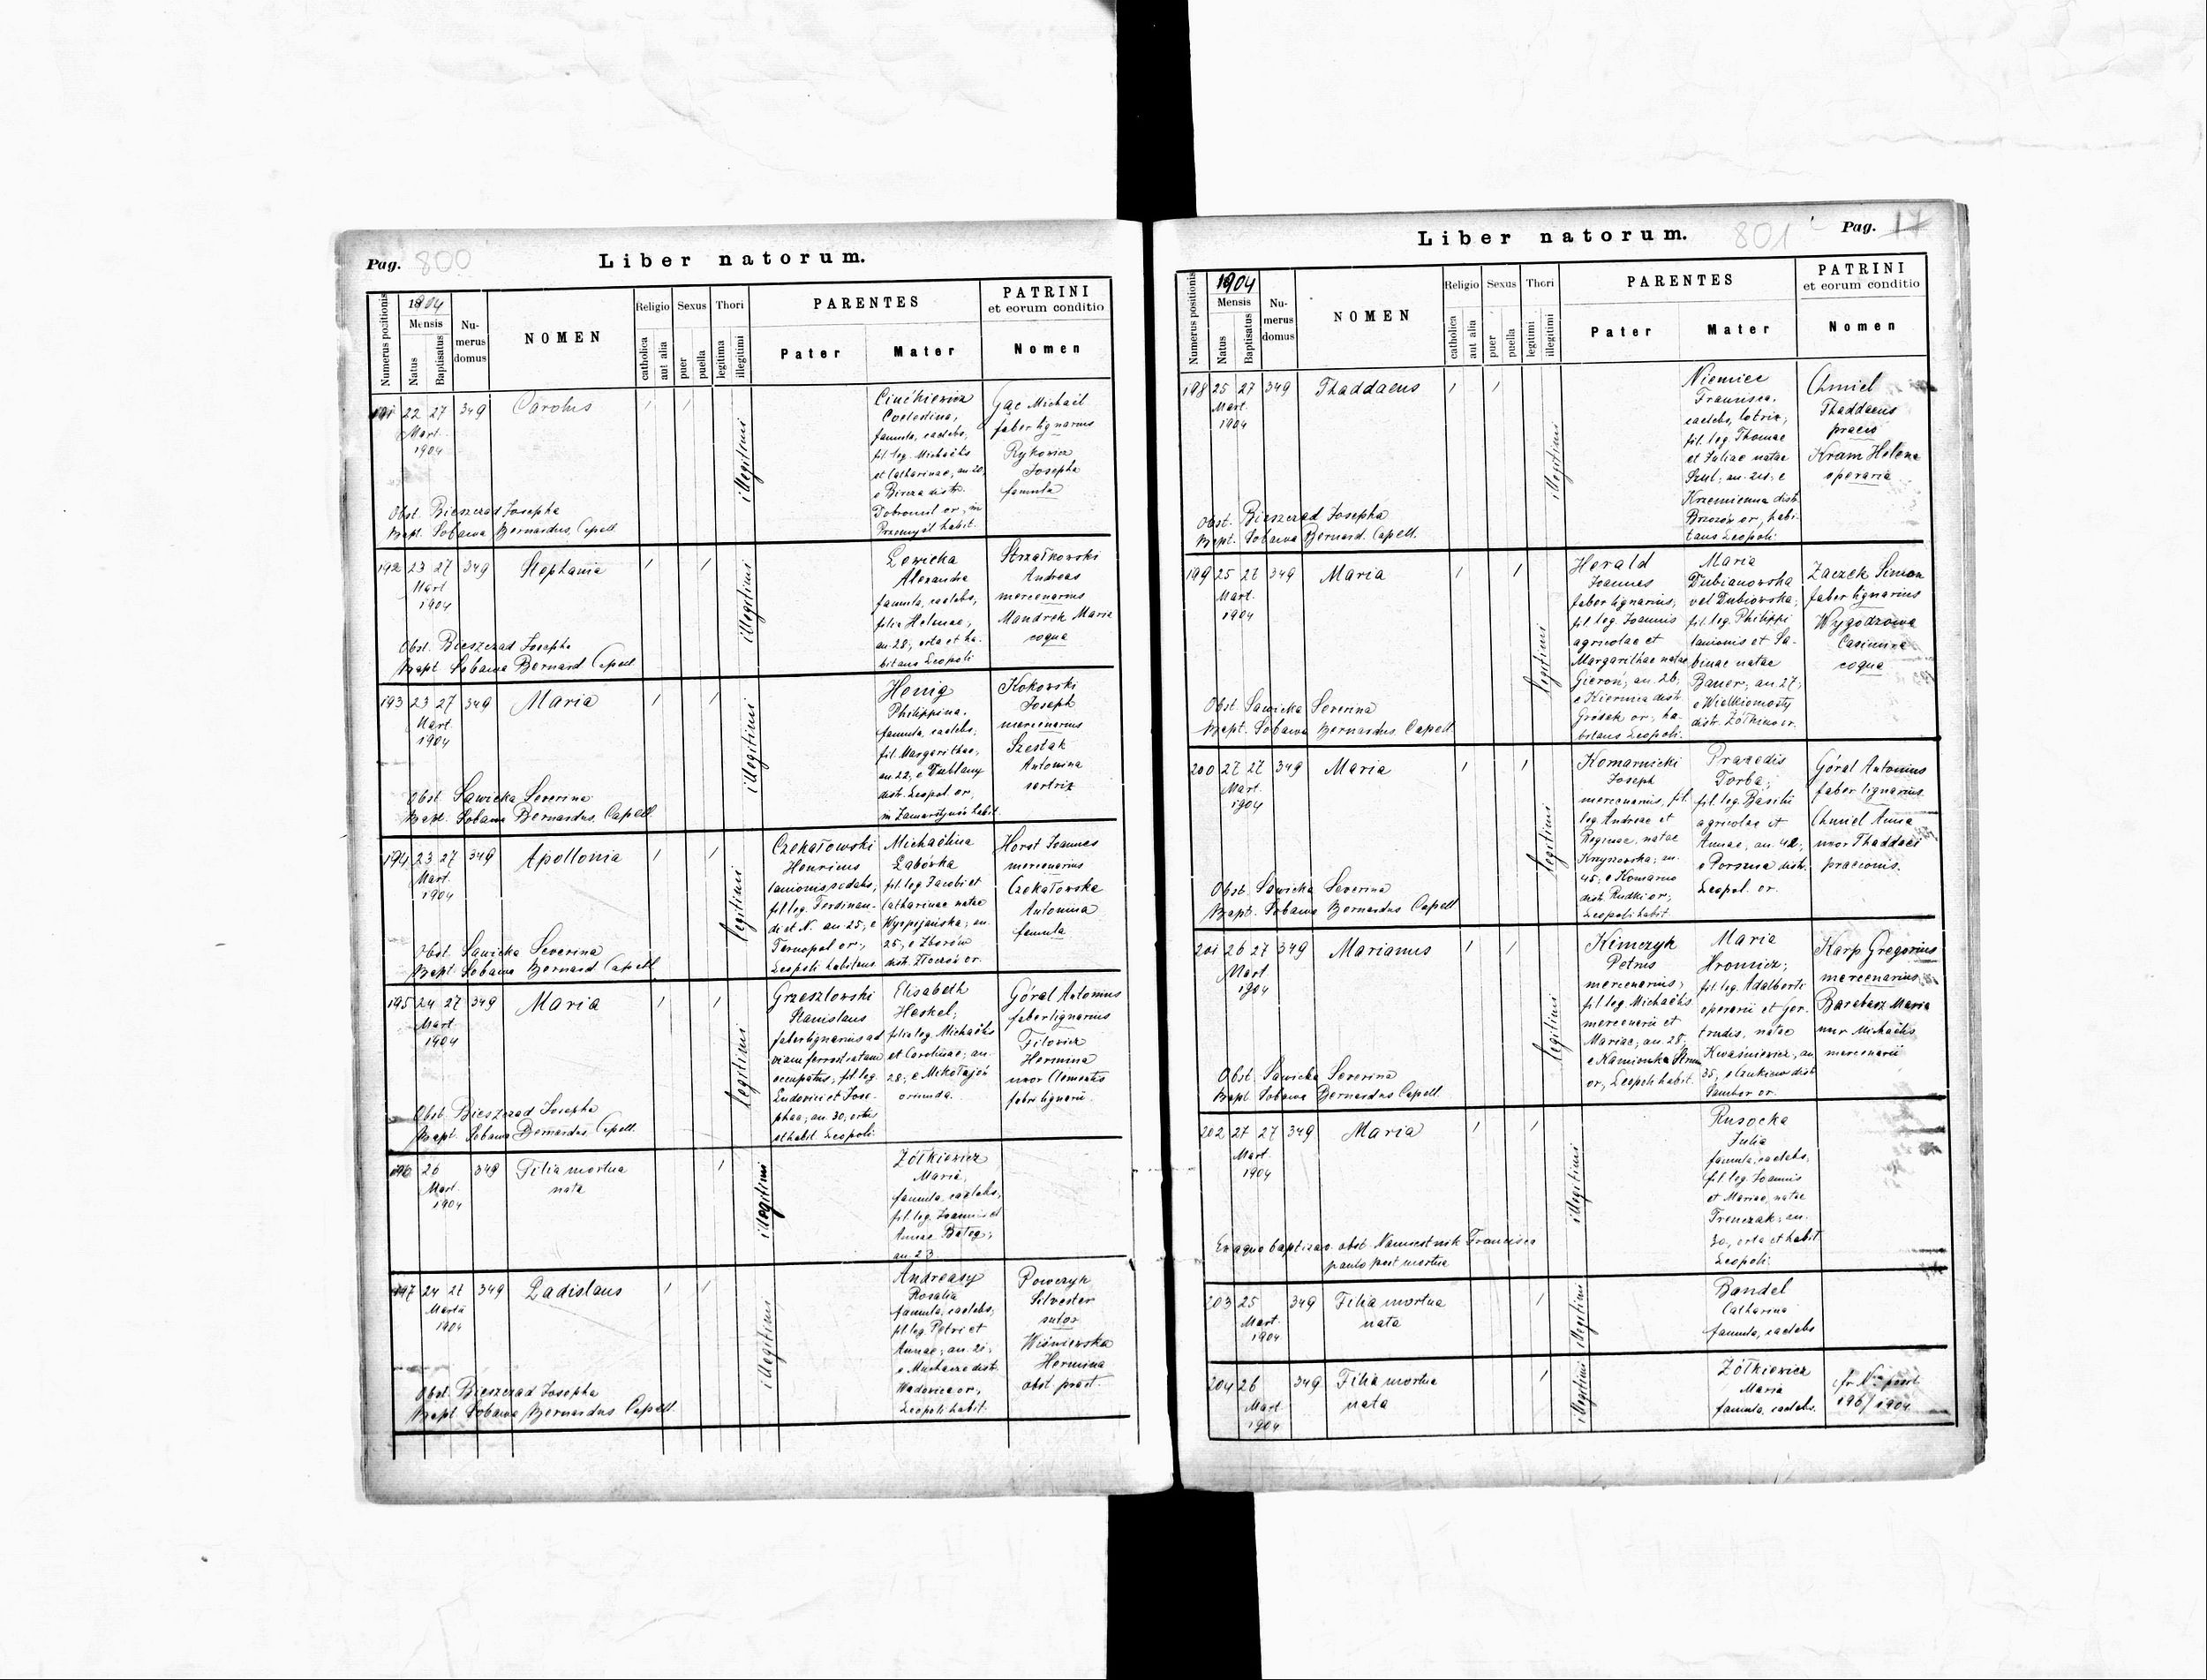 Pag. 800
Liber natorum.
Numerus positionis
1904
Mensis
Natus
Baptisatus
Numerus domus
NOMEN
Religio
catholica
aut alia
Sexus
puer
puella
Thori
legitima
illegitimi
PARENTES
Pater
Mater
PATRINI
et eorum conditio
Nomen
191 22 27 349 Carolus
Mart.
1904
illegitimi
Coelestina,
famula, caelebs,
fil. leg. Michaëlis
et Catharinae, an. 20,
e Bircza distr.
Dobromil or., in
Przemyśl habit.
Gąc Michaël
faber lignarius
Rykowicz
Josepha
famula
Obst. Bieszczad Josepha
Bapt. Sobawa Bernardus, Capell.
192 23 27 349 Stephania
Mart
1904
illegitimi
Łowicka
Alexandra
famula, caelebs,
filia Helenae,
an. 28, orta et ha-
bitans Leopoli
Strzałkowski
Andreas
mercenarius
Mandrek Maria
coqua
Obst. Bieszczad Josepha
Bapt. Sobawa Bernard Capell.
193 23 27 349 Maria
Mart.
1904
illegitimi
Honig
Philippina,
famula, caelebs,
fil. Margarithae,
an. 22, e Dublany
distr. Leopol. or.,
in Zamarstynów habit.
Kokowski
Joseph
mercenarius
Szestak
Antonina
sartrix
Obst. Sawicka Severina
Bapt. Sobawa Bernardus, Capell.
194 23 27 349 Apollonia
Mart.
1904
legitimi
Czekałowski
Henricus
lanionis sodalis,
fil. leg. Ferdinan-
di et N. an. 25, e
Tarnopol or.,
Leopoli habitans.
Michaëlina
Laborka
fil. leg. Jacobi et
Catharinae natae
Wyspijańska; an.
25, e Zborów
distr. Złoczów or.
Horst Joannes
mercenarius
Czekałowska
Antonina
famula
Obst. Sawicka Severina
Bapt. Sobawa Bernard Capell.
195 24 27 349 Maria
Mart.
1904
legitimi
Grzeszlowski
Stanislaus
faber lignarius ad
viam ferrostratam
occupatus, fil. leg.
Ludovici et Jose-
phae, an. 30, ortus
et habit. Leopoli.
Elisabeth
Heskel;
filia leg. Michaëlis
et Carolinae; an.
28, e Mikołajów
oriunda.
Góral Antonius
faber lignarius
Filowicz
Hermina
uxor Clementis
fabri lignarii.
Obst. Bieszczad Josepha
Bapt. Sobawa Bernardus, Capell.
196 26 349 Filia mortua
Mart. nata
1904
illegitimi
Żółkiewicz
Maria,
famula, caelebs,
fil. leg. Joannis et
Annae Batog;
an. 23.
197 24 27 349 Ladislaus
Martii
1904
illegitimi
Andreasy
Rosalia
famula, caelebs,
fil. leg. Petri et
Annae; an. 21,
e Mucharz distr.
Wadowice or.,
Leopoli habit.
Powczyk
Silvester
sutor
Wiśniewska
Hermina
obst. pract.
Obst. Bieszczad Josepha
Bapt. Sobawa Bernardus Capell.
Liber natorum.
801
Pag. 17
Numerus positionis
1904
Mensis
Natus
Baptisatus
Numerus domus
NOMEN
Religio
catholica
aut alia
Sexus
puer
puella
Thori
legitimi
illegitimi
PARENTES
Pater
Mater
PATRINI
et eorum conditio
Nomen
198 25 27 349 Thaddaeus
Mart.
1904
illegitimi
Niemiec
Francisca,
caelebs, lotrix,
fil. leg. Thomae
et Juliae natae
Szul; an. 21; e
Krzemienna distr.
Brzozów or., habi-
tans Leopoli.
Chmiel
Thaddaeus
praeco
Kram Helena
operaria
Obst. Bieszczad Josepha
Bapt. Sobawa Bernard. Capell.
199 25 27 349 Maria
Mart.
1904
legitimi
Herald
Joannes
faber lignarius,
fil. leg. Joannis
agricolae et
Margarithae natae
Gieroń; an. 26,
e Kiernica distr.
Gródek or., ha-
bitans Leopoli.
Maria
Dubianowska
vel Dubiowska;
fil. leg. Philippi
lanionis et Sa-
binae natae
Bauer; an. 27;
e Wielkiemosty
distr. Żółkiew or.
Zaczek Simon
faber lignarius
Wygodzowa
Casimira
coqua
Obst. Sawicka Severina
Bapt. Sobawa Bernardus, Capell.
200 27 27 349 Maria
Mart.
1904
legitimi
Komarnicki
Joseph
mercenarius, fil.
leg. Andreae et
Reginae, natae
an.
45; e Komarno
distr. Rudki or.,
Leopoli habit.
Praxedis
Torba;
fil. leg. Basilii
agricolae et
Annae, an. 42,
e Porszna distr.
Leopol. or.
Góral Antonius
faber lignarius.
Chmiel Anna
uxor Thaddaei
praeconis.
Obst. Sawicka Severina
Bapt. Sobawa Bernardus Capell.
201 26 27 349 Marianus
Mart
1904
legitimi
Kimczyk
Petrus
mercenarius;
fil. leg. Michaëlis
mercenarii et
Mariae; an. 28;
e Kamionka Strum.
or., Leopoli habit.
Maria
Hromicz;
fil. leg. Adalberti
operarii et Ger-
trudis, natae
Kwaśniewicz, an.
35, distr.
Sambor or.
Karp Gregorius
mercenarius,
Barabasz Maria
uxor Michaëlis
mercenarii
Obst. Sawicka Severina
Bapt. Sobawa Bernardus Capell.
202 27 27 349 Maria
Mart.
1904
illegitimi
Rusocka
Julia
famula, caelebs,
fil. leg. Joannis
et Mariae, natae
Trenczak; an.
30, orta et habit.
Leopoli.
Ex aqua baptizav. obst. Namiestnik Francisca
paulo post mortua
203 25 349 Filia mortua
Mart. nata
1904
illegitimi
Bandel
Catharina
famula, caelebs
204 26 349 Filia mortua
Mart. nata
1904
illegitimi
Żółkiewicz
Maria
famula, caelebs.
cfr. Nr. posit.
196/1904